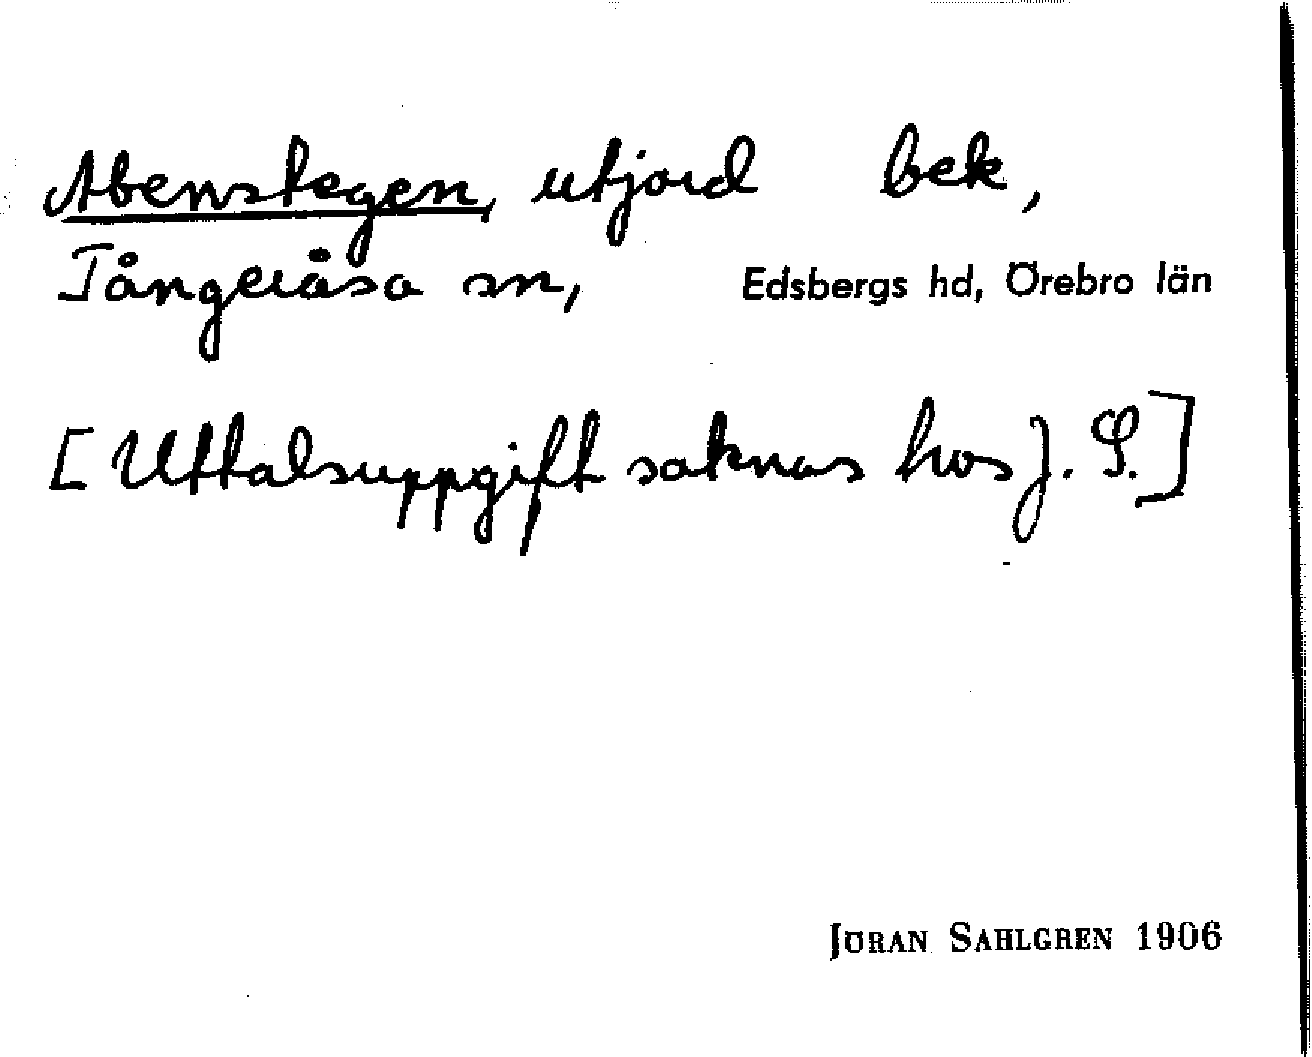 Abenstegen, utjord bek,
Tångeråsa sn, Edsbergs hd, Örebro län
[Uttalsuppgift saknas hos J. S.]
JÖRAN SAHLGREN 1906